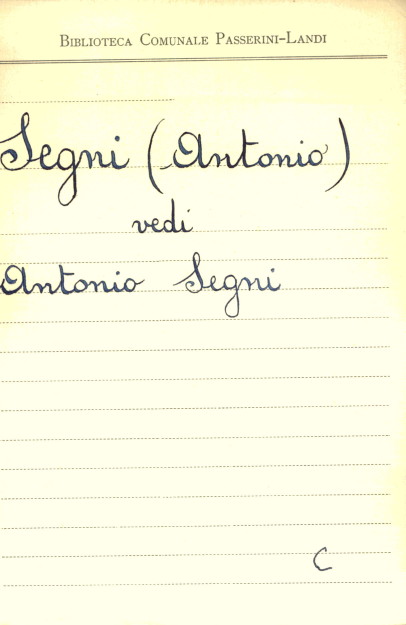 Biblioteca Comunale Passerini-Landi
Segni (Antonio)
vedi
Antonio Segni
C